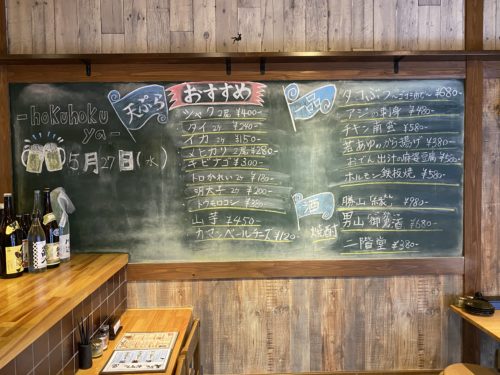 -hokuhoku
ya-
5月27日(水)
天ぷら
おすすめ
2尾 ¥400-
タイ 2ケ ¥240-
イカ 2ケ ¥150-
メヒカリ 2尾 ¥280-
キビナゴ ¥300-
トロかれい 2ケ ¥180-
明太子 2ケ ¥200-
トウモロコシ ¥380-
山芋 ¥450-
カマンベールチーズ ¥120-
一品
¥680-
アジの刺身 ¥480-
チキン南蛮 ¥580-
若あゆのから揚げ ¥380-
おでん出汁の麻婆豆腐 ¥560-
ホルモン鉄板焼 ¥580-
酒
焼酎
勝山 ¥980-
男山 御免酒 ¥680-
二階堂 ¥380-